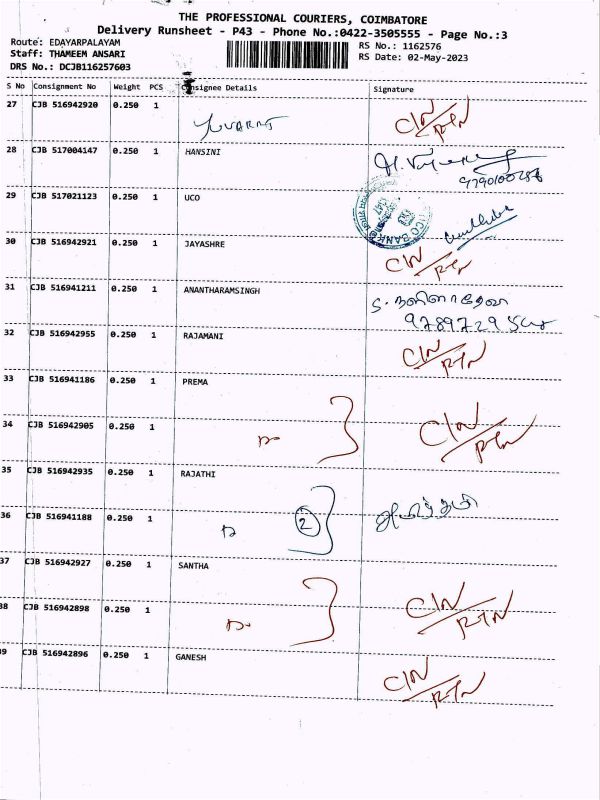 THE PROFESSIONAL COURIERS, COIMBATORE
Delivery Runsheet - P43 - Phone No.:0422-3505555 - Page No.:3
Route: EDAYARPALAYAM RS No.: 1162576
Staff: THAMEEM ANSARI RS Date: 02-May-2023
DRS No.: DCJB116257603
S No Consignment No Weight PCS Consignee Details Signature
27 CJB 516942920 0.250 1 YUVARAJ C/N/RTN
28 CJB 517004147 0.250 1 HANSINI
29 CJB 517021123 0.250 1 UCO UCO BANK
30 CJB 516942921 0.250 1 JAYASHRE C/N/RTN
31 CJB 516941211 0.250 1 ANANTHARAMSINGH
32 CJB 516942955 0.250 1 RAJAMANI C/N/RTN
33 CJB 516941186 0.250 1 PREMA
34 CJB 516942905 0.250 1 C/N/RTN
35 CJB 516942935 0.250 1 RAJATHI
36 CJB 516941188 0.250 1 2
37 CJB 516942927 0.250 1 SANTHA
38 CJB 516942898 0.250 1 C/N/RTN
39 CJB 516942896 0.250 1 GANESH C/N/RTN